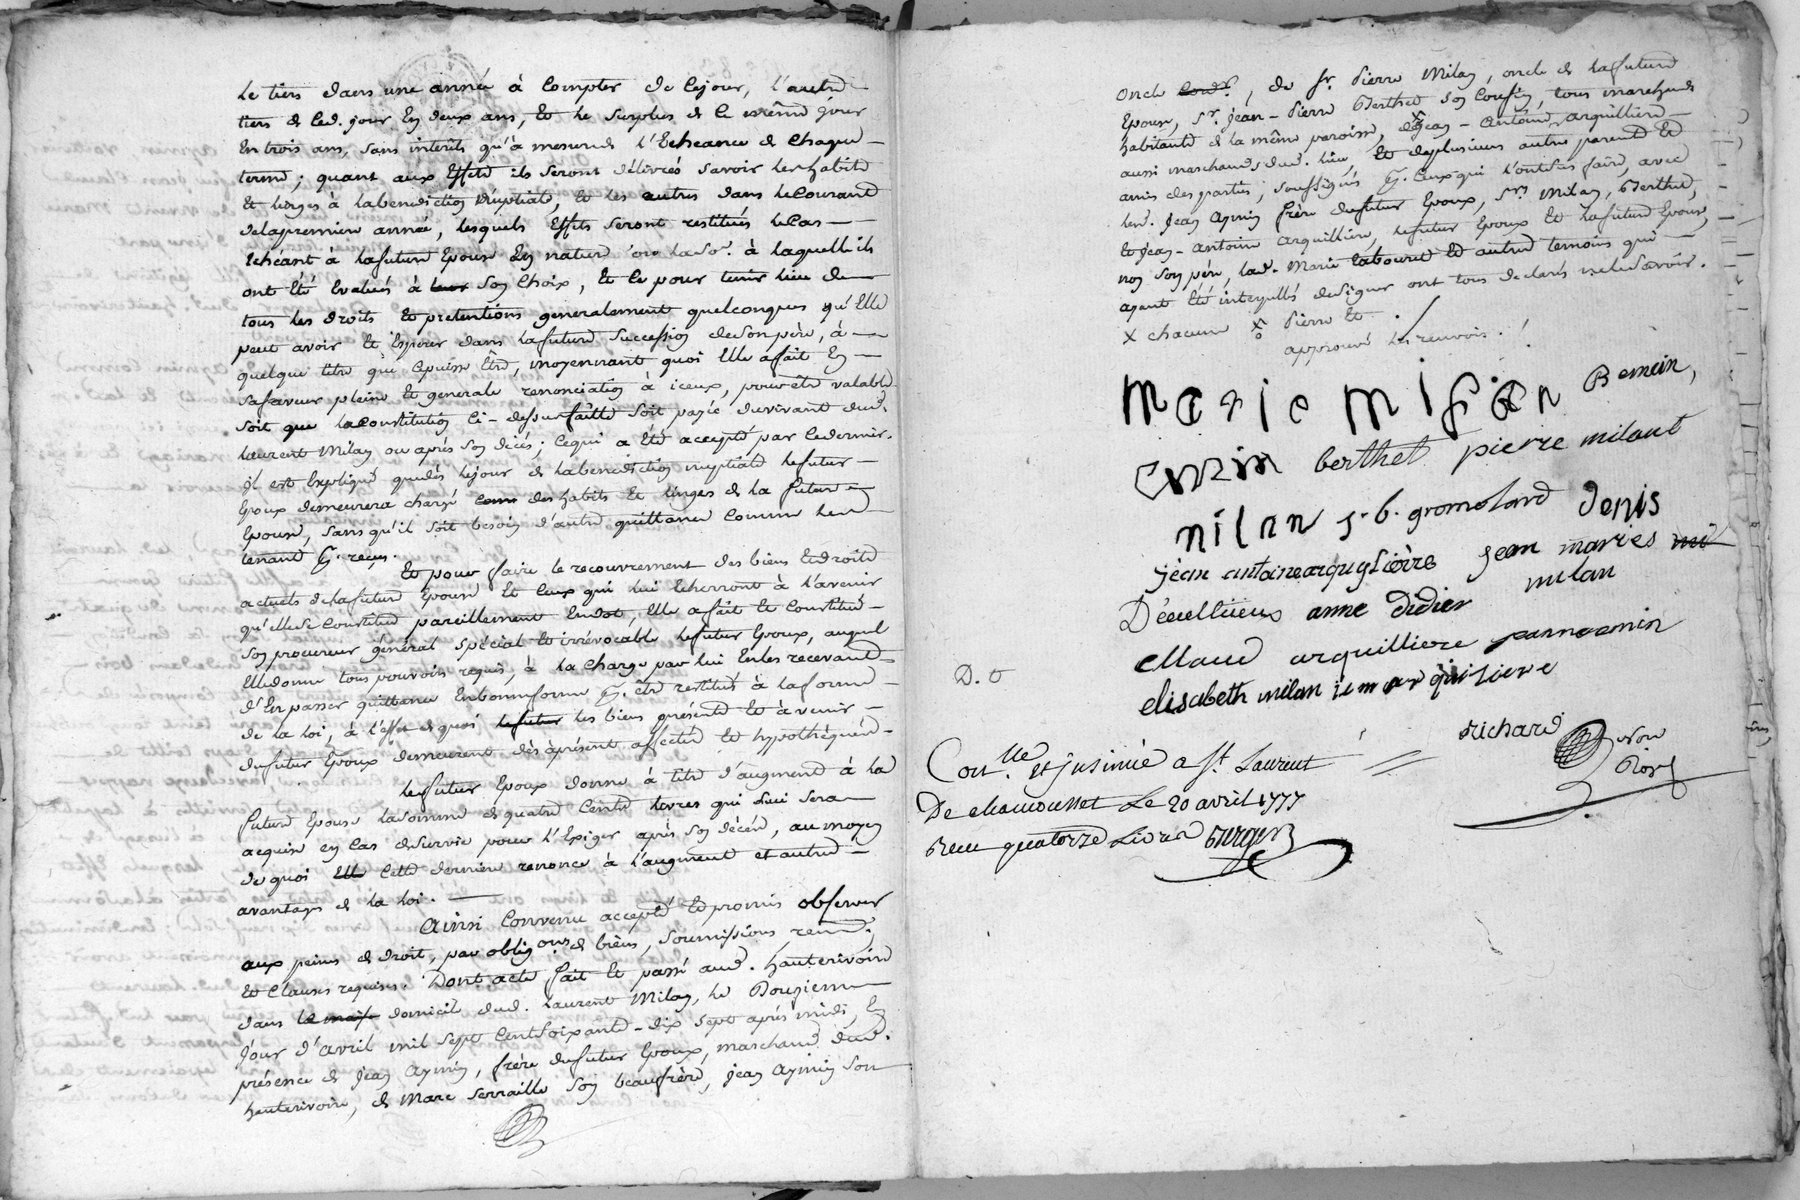 le tiers dans une année à compter de cejour, l'autre
tiers de led. jour en deux ans, et le surplus de ce même jour
en trois ans, sans interêts qu'à mesure de l'Echeance de chaque
terme; quant aux Effets ils seront délivrés savoir les habits
et linges à labenediction Nuptiale, et les autres dans lecourant
delapremiere année, lesquels Effets seront restitués le cas
Echéant à lafuture Epouse en nature ou la so.e à laquelle ils
ont été Evalués à son choix, et ce pour tenir lieu de
tous les droits et pretentions generalement quelconques qu'Elle
peut avoir et Esperer dans lafuture succession desonpère, à
quelque titre que cepuisse Être, moyennant quoi Elle afait en
safaveur pleine et generale renonciation à iceux, pour être valable
soit que laconstitution ci-dessus faitte soit payée duvivant dud.
Laurent Milan ou après son décés; cequi a été accepté par cedernier.
il est Expliqué quedès lejour de labenediction nuptiale lefutur
Epoux demeurera chargé des habits et linges de la future
Epouse, sans qu'il soit besoin d'autre quittance comme les
tenant p. reçus.
Et pour faire le recouvrement des biens et droits
actuels delafuture Epouse et ceux qui lui Echerront à l'avenir
qu'elle se constitue pareillement Endot, Elle afait et constitué
son procureur général spécial et irrévocable lefutur Epoux, auquel
Elledonne tous pouvoirs requis, à la charge par lui Enles recevant
d'En passer quittance Enbonneforme p. être restitués à laforme
de la loi, à l'effet de quoi les biens présents et à venir
dufutur Epoux demeurent dès àprésent affectés et hypothéqués.
lefutur Epoux donne à titre d'augment à la
future Epouse lasomme de quatre cents livres qui lui sera
acquise en cas desurvie pour l'Exiger après son décés, au moyen
de quoi cette derniere renonce à l'augment et autres
avantages de la loi.
Ainsi convenu accepté et promis observer
aux peines de droit, par oblig.ons de biens, soumissions, renon.
et clauses requises. Dont acte fait et passé aud. hauterivoire
dans domicile dud. Laurent Milan, le Douzieme
jour d'avril mil sept centsoixante-dix sept après midi, en
présence de jean aymin, frère dufutur Epoux, marchand dud.
hauterivoire, de Marc serraille son beaufrère, jean aymin son
oncle, de sr. Pierre Milan, oncle de lafuture
Epouse, sr. jean-Pierre Berthet son cousin, tous marchands
habitants de la même paroisse, de jean-antoine arquilliere
aussi marchand dud. lieu, et deplusieurs autres parents et
amis des parties, soussignés p. ceux qui l'ont scu faire, avec
led. jean aymin frère dufutur Epoux, srs Milan, Berthet,
et jean-antoine arquilliere, lefutur Epoux et lafuture Epouse,
non son père, lad. Marie Labouré et autres temoins qui
ayant été interpellés designer ont tous declarés nelesavoir.
x chacune x o Pierre et.
approuvé les renvois.
Marie Misan Bemein,
Emin berthet pierre milant
milan j. b. gromolard denis
jean antoinearquglière jean maries
Décullieux anne didier milan
Claud arquilliere jannaemin
elisabeth milan jem ar quiliere
D. O
Richard
Con.lle et jnsinué a St. Laurent
De chamousset Le 20 avril 1777
Receu quatorze Livres